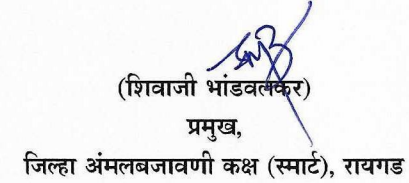 (शिवाजी भांडवलकर)
प्रमुख,
जिल्हा अंमलबजावणी कक्ष (स्मार्ट), रायगड